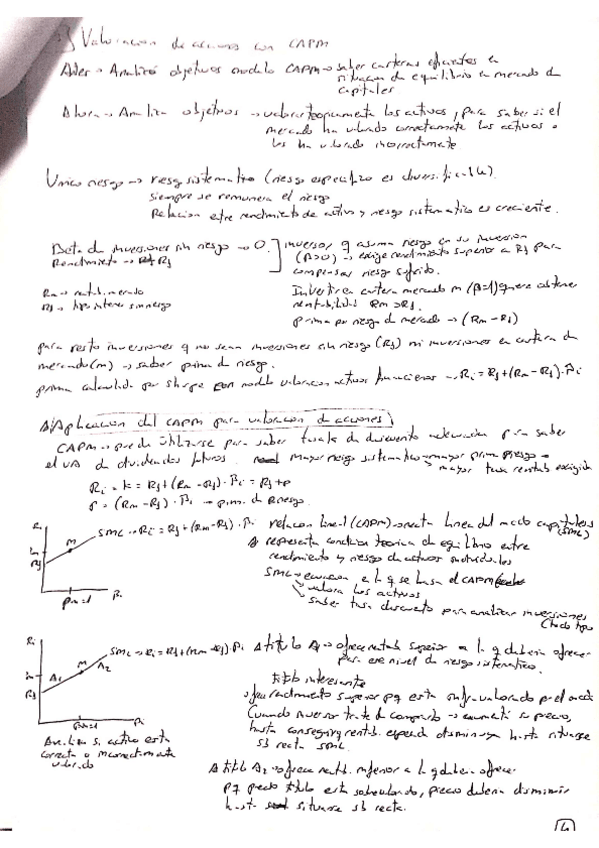 Valoración de acciones con CAPM
Antes → Analizó objetivos modelo CAPM → saber carteras eficientes en
situación de equilibrio en mercado de
capitales
Ahora → Analiza objetivos → valorar teoricamente los activos, para saber si el
mercado ha valorado correctamente los activos o
los ha valorado incorrectamente
Unico riesgo → riesgo sistematico (riesgo especifico es diversificable)
siempre se remunera el riesgo
Relacion entre rendimiento de activo y riesgo sistematico es creciente.
Beta de inversiones sin riesgo → 0
Rendimiento → Rf
inversor q asuma riesgo en su inversion
(β>0) → exige rendimiento superior a Rf para
compensar riesgo sufrido.
Rm → rentab. mercado
Rf → tipo interes sin riesgo
Invertir en cartera mercado m (β=1) quiere obtener
rentabilidad Rm > Rf.
prima por riesgo de mercado → (Rm - Rf)
para resto inversiones q no sean inversiones sin riesgo (Rf) ni inversiones en cartera de
mercado (m) → saber prima de riesgo.
prima calculada por Sharpe con modelo valoracion activos financieros → Ri = Rf + (Rm - Rf)·βi
Aplicación del CAPM para valoracion de acciones
CAPM → puede utilizarse para saber tasa de descuento adecuada para saber
el VA de dividendos futuros. mayor riesgo sistematico → mayor prima riesgo →
mayor tasa rentab exigida
Ri = k = Rf + (Rm - Rf)·βi = Rf + p
p = (Rm - Rf)·βi → prima de riesgo.
Ri
M
Rm
Rf
βm=1
βi
SML → Ri = Rf + (Rm - Rf)·βi
relacion lineal (CAPM) → recta linea del mercado capitales
(SML)
representa condicion teorica de equilibrio entre
rendimiento y riesgo de activos individuales
SML → ecuacion en la q se basa el CAPM
valora los activos
saber tasa descuento para analizar inversiones
Ri
A1
M
A2
Rm
Rf
βm=1
βi
SML → Ri = Rf + (Rm - Rf)·βi
titulo A1 → ofrece rentab superior a la q deberia ofrecer
para ese nivel de riesgo sistematico.
titulo interesante
ofrece rendimiento superior pq esta infravalorado por el mercado
Cuando inversor trate de comprarlo → aumentará su precio,
hasta conseguir q rentab. esperada disminuya hasta situarse
sb recta SML.
Analiza si activo está
correcta o incorrectamente
valorado
titulo A2 → ofrece rentb. inferior a la q deberia ofrecer
pq precio titulo esta sobrevalorado, precio deberia disminuir
hasta situarse sb recta.